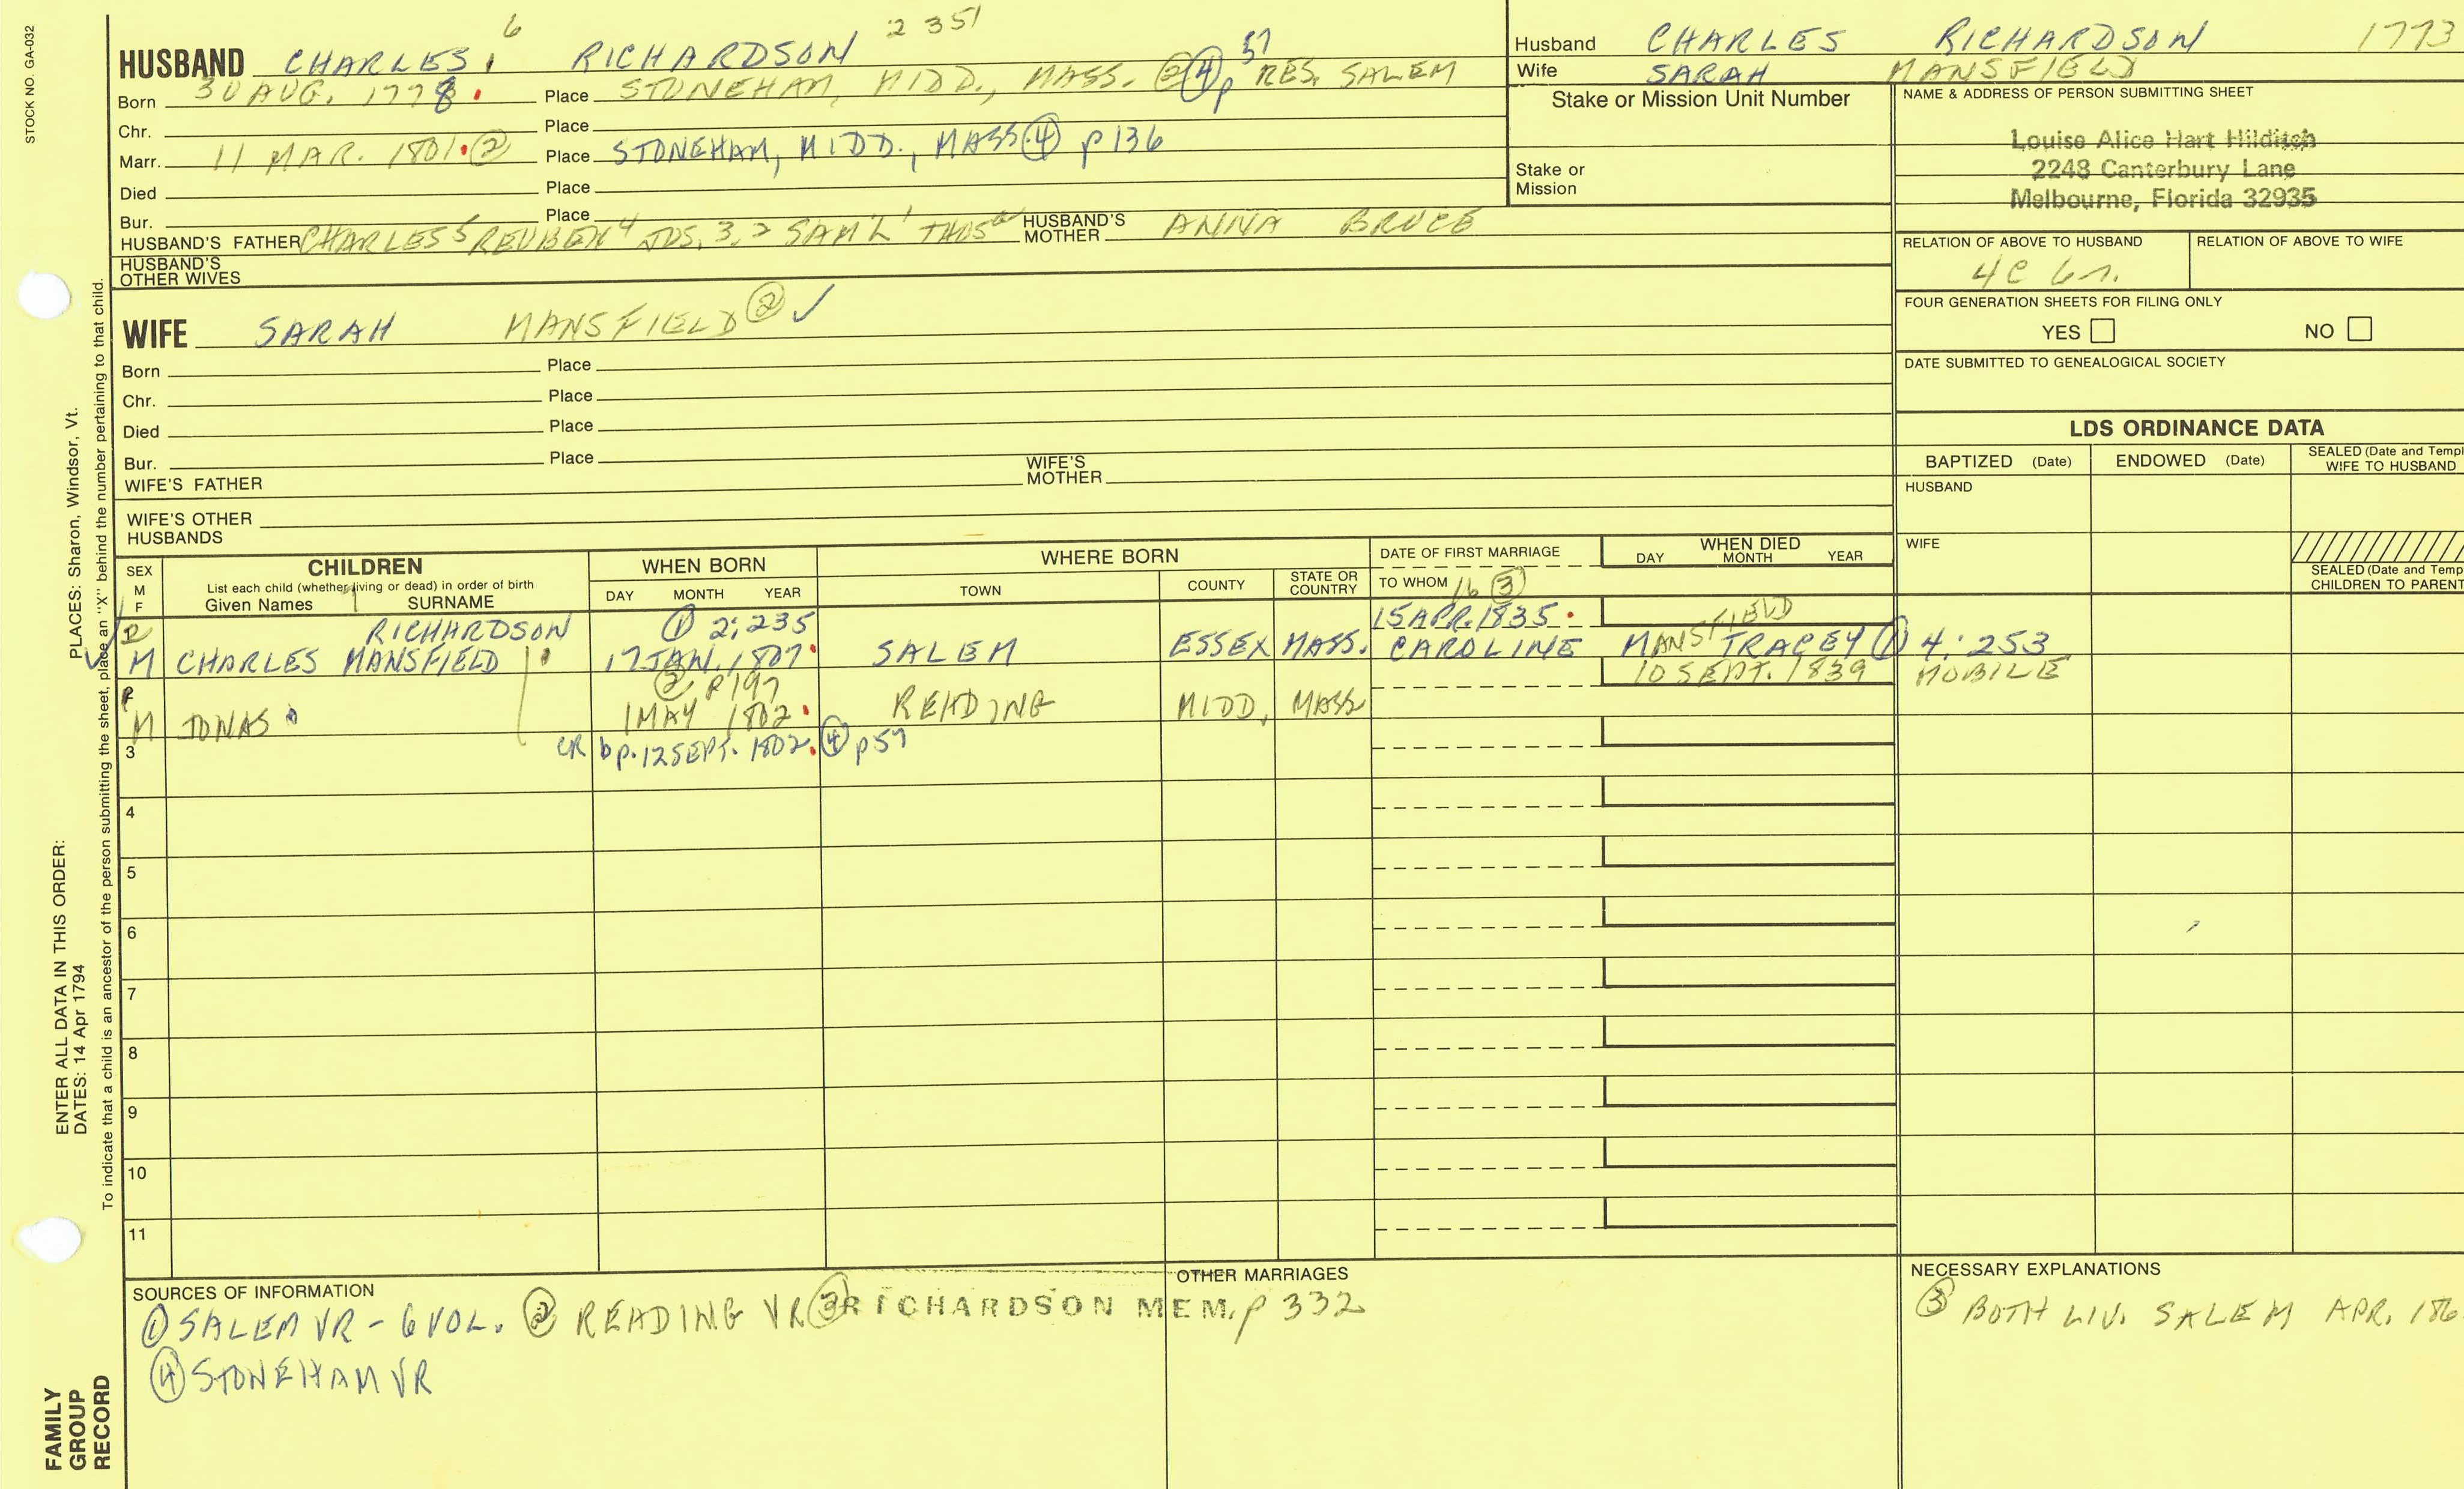 STOCK NO. GA-032
6
2 351
HUSBAND CHARLES RICHARDSON
57
Born 30 AUG. 1778. Place STONEHAM, MIDD., MASS. ② ④ p RES. SALEM
Chr. Place
Marr. 11 MAR. 1801. ② Place STONEHAM, MIDD., MASS ④ p 136
Died Place
Bur. Place
HUSBAND'S FATHER CHARLES 5 REUBEN 4 JOS. 3, 2 SAM'L 1 THOS HUSBAND'S MOTHER ANNA BRUCE
HUSBAND'S OTHER WIVES
Husband CHARLES RICHARDSON 1773
Wife SARAH MANSFIELD
Stake or Mission Unit Number
Stake or Mission
NAME & ADDRESS OF PERSON SUBMITTING SHEET
Louise Alice Hart Hilditch
2248 Canterbury Lane
Melbourne, Florida 32935
RELATION OF ABOVE TO HUSBAND RELATION OF ABOVE TO WIFE
4C 6r.
FOUR GENERATION SHEETS FOR FILING ONLY
YES NO
DATE SUBMITTED TO GENEALOGICAL SOCIETY
WIFE SARAH MANSFIELD ② ✓
Born Place
Chr. Place
Died Place
Bur. Place
WIFE'S FATHER WIFE'S MOTHER
WIFE'S OTHER HUSBANDS
LDS ORDINANCE DATA
BAPTIZED (Date) ENDOWED (Date) SEALED (Date and Templ
WIFE TO HUSBAND
HUSBAND
WIFE
SEALED (Date and Temp
CHILDREN TO PARENT
SEX M F
CHILDREN
List each child (whether living or dead) in order of birth
Given Names SURNAME
WHEN BORN
DAY MONTH YEAR
WHERE BORN
TOWN COUNTY STATE OR COUNTRY
DATE OF FIRST MARRIAGE
TO WHOM 16 ③
WHEN DIED
DAY MONTH YEAR
2 RICHARDSON ① 2:235 15 APR. 1835. MANSFIELD
✓ M CHARLES MANSFIELD 17 JAN. 1807. SALEM ESSEX MASS. CAROLINE MANS TRACEY ① 4:253
② P197 10 SEPT. 1839 MOBILE
M JONAS 1 MAY 1802. READING MIDD, MASS
3 CR bp. 12 SEPT. 1802. ④ p 57
4
5
6
7
8
9
10
11
SOURCES OF INFORMATION
① SALEM VR - 6 VOL. ② READING VR ③ RICHARDSON MEM. p 332
④ STONEHAM VR
OTHER MARRIAGES
NECESSARY EXPLANATIONS
③ BOTH LIV. SALEM APR. 186
PLACES: Sharon, Windsor, Vt.
ENTER ALL DATA IN THIS ORDER:
DATES: 14 Apr 1794
To indicate that a child is an ancestor of the person submitting the sheet, place an "X" behind the number pertaining to that child.
FAMILY
GROUP
RECORD